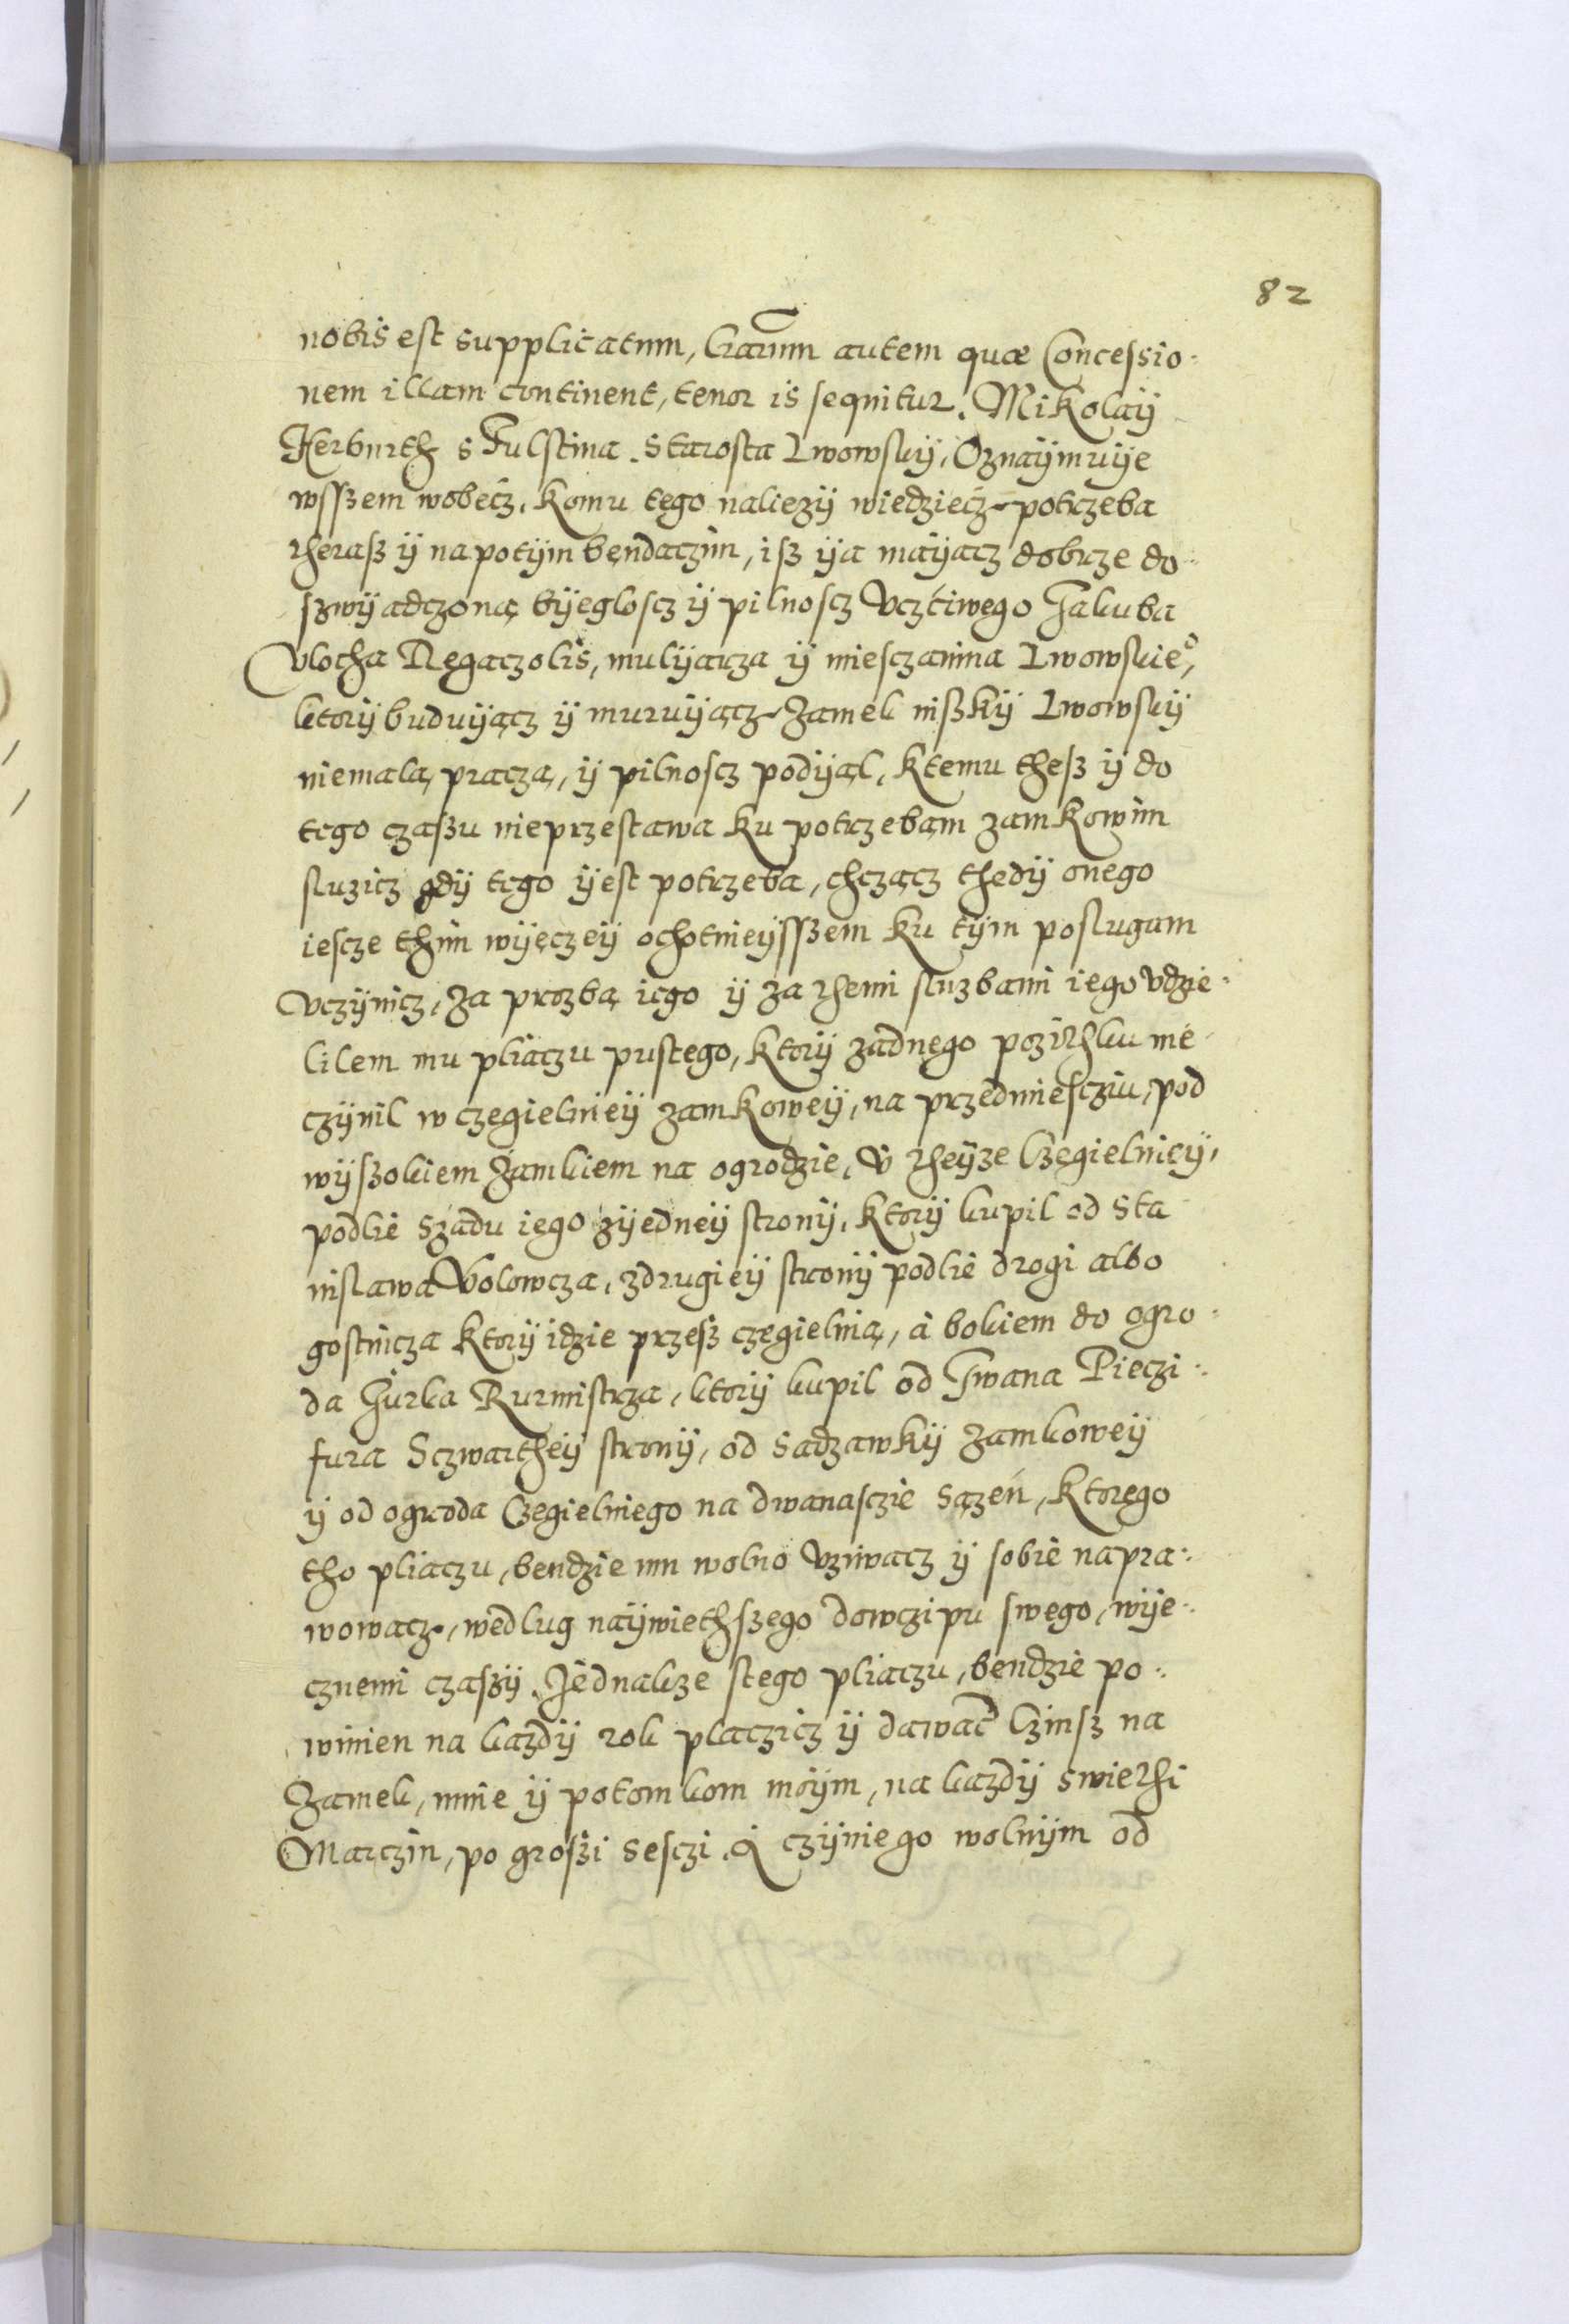 82
nobis est supplicatum, Lrarum autem quæ Concessio-
nem illam continent, tenor is sequitur. Mikolaÿ
Herburth s Fulstina. Starosta Lwowskÿ, Oznaÿmuÿe
wsszem wobecz, komu tego naliezÿ wiedziecz potrzeba
theraß ÿ napotÿm bendaczim, iß ÿa maÿacz dobrze do-
szwÿadczoną bÿeglosc ÿ pilnoscz Vcztiwego Jakuba
Vlocha Regaczolis, mulÿarza ÿ miesczanina Lwowskieo,
ktorÿ buduÿącz ÿ muruÿącz Zamek nißkÿ Lwowskÿ
niemalą praczą, ÿ pilnoscz podÿąl, ktemu theß ÿ do
tego czaßu nieprzestawa ku potrzebąm zamkowim
sluzicz gdÿ tego ÿest potrzeba, chcząc thedÿ onego
iescze thim wÿęczeÿ ochotnieÿsszem ku tÿm poslugam
Vczÿnicz, Za prozbą iego ÿ za themi sluzbami iego Vdzie-
lilem mu pliaczu pustego, ktorÿ zadnego pozithku nie
czÿnil w czegielnieÿ zamkoweÿ, na przedmiescziu, pod
wÿszokiem Zamkiem na ogrodzie, V theÿze Czegielnieÿ,
podlie Szadu iego zÿedneÿ stronÿ, ktorÿ kupil od Sta
nislawa Volowcza, zdrugieÿ stronÿ podlie drogi albo
gostincza ktorÿ idzie przeß czegielnią, a bokiem do ogro-
da Jurka Rurmistrza, ktorÿ kupil od Iwana Pieczi-
fura Sczwartheÿ stronÿ, od sadzawkÿ Zamkoweÿ
ÿ od ogroda Czegielniego na dwanasczie sązen, ktorego
tho pliaczu, bendzie mu wolno Vziwacz ÿ sobie napra-
wowacz, wedlug naÿwiethszego dowczipu swego, wÿe-
cznemi czaßÿ. Jednakze stego pliaczu, bendzie po-
winien na kazdÿ rok placzicz ÿ dawac Czinsz na
Zamek, mnie ÿ potomkom moÿm, na kazdÿ swiethi
Marczin, po groszi sesczi. A czÿniego wolnÿm od